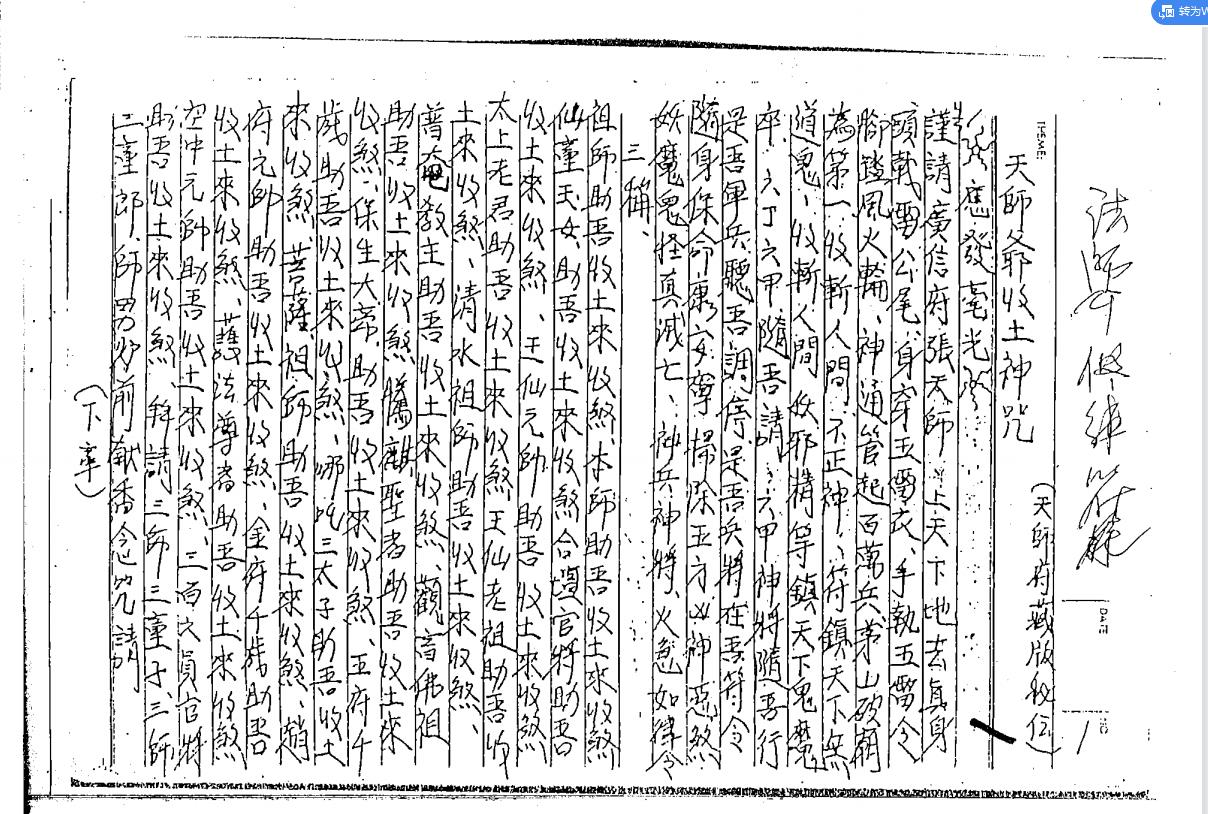 转为W
法師 修練符
天師爺收土神咒 (天師府藏版秘传)
應發毫光
謹請廣信府張天師上天下地去真身
頭戴雷公尾、身穿五雷衣、手執五雷令
脚踏風火輪、神通管起百萬兵茅山破廟
為第一收斬人間不正神、符鎮天下無
道鬼、收斬人間妖邪精等鎮天下鬼魔
卒、六丁六甲隨吾請、六甲神將隨吾行
是吾軍兵聽吾調、倍是吾兵將在吾符令
隨身保命康安寧掃除五方凶神惡煞
妖魔鬼怪真滅亡、神兵神將、火急如律令
三稱、
祖師助吾收土來收煞、本師助吾收土來收煞
仙童玉女、助吾收土來收煞合壇官將助吾
收土來收煞、王仙元帥、助吾收土來收煞、
太上老君、助吾收土來收煞、王仙老祖助吾收
土來收煞、清水祖師助吾收土來收煞、
普庵教主助吾收土來收煞、觀音佛祖
助吾收土來收煞騰麒聖者助吾收土來
收煞、保生大帝助吾收土來收煞、五府千
歲助吾收土來收煞、哪吒三太子助吾收土
來收煞、菩薩祖師助吾收土來收煞、趙
府元帥助吾收土來收煞、金府千歲助吾
收土來收煞、護法尊者助吾收土來收煞
空中元帥助吾收土來收煞、三百六員官將
助吾收土來收煞、拜請三師三童子、三師
三童郎、師男炉前献香念咒請
(下章)
DATE
NO 1